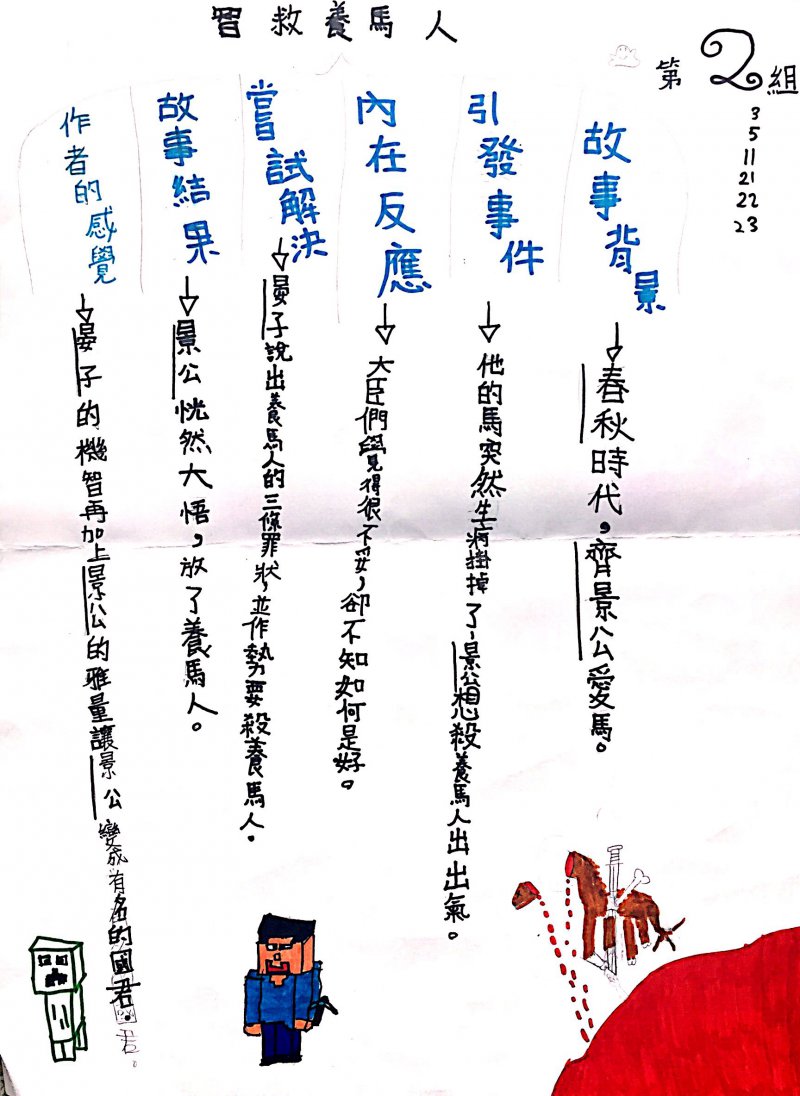 智救養馬人
第2組
3
5
11
21
22
23
故事背景
春秋時代，齊景公愛馬。
引發事件
他的馬突然生病掛掉了，景公想殺養馬人出出氣。
內在反應
大臣們覺得很不妥，卻不知如何是好。
嘗試解決
晏子說出養馬人的三條罪狀，並作勢要殺養馬人。
故事結果
景公恍然大悟，放了養馬人。
作者的感覺
晏子的機智再加上景公的雅量讓景公變成有名的國君。
君。